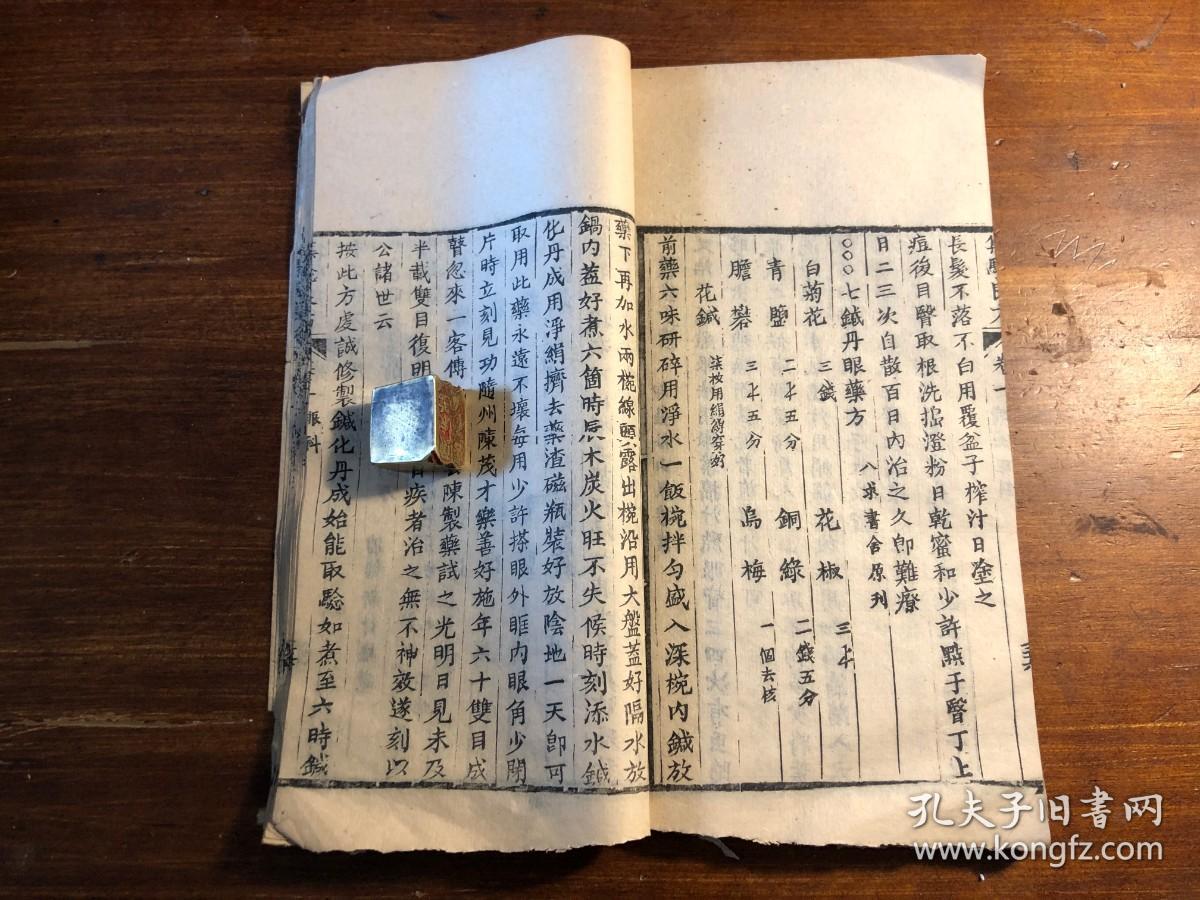 長髮不落不白用覆盆子榨汁日塗之
痘後目瞖取根洗搗澄粉日乾蜜和少許㸃于瞖丁上
日二三次自散百日內治之久卽難療
〇〇〇七鍼丹眼藥方 八求書舍原刊
白菊花 三錢 花椒
青鹽 二 五分 銅綠 二錢五分
膽礬 三 五分 烏梅 一個去核
花鍼 柒枚用絹線穿好
前藥六味研碎用凈水一飯椀拌勻盛入深椀內鍼放
藥下再加水兩椀線頭露出椀沿用大盤蓋好隔水放
鍋內蓋好煮六箇時辰木炭火旺不失候時刻添水鍼
化丹成用淨絹擠去藥渣磁瓶裝好放陰地一天卽可
取用此藥永遠不壞每用少許搽眼外眶內眼角少閉
片時立刻見功隨州陳茂才樂善好施年六十雙目成
瞽忽來一客傳 陳製藥試之光明日見未及
半載雙目復明 疾者治之無不神效遂刻以
公諸世云
按此方虔誠修製鍼化丹成始能取驗如煮至六時鍼
卷一
眼科
孔夫子旧书网
www.kongfz.com